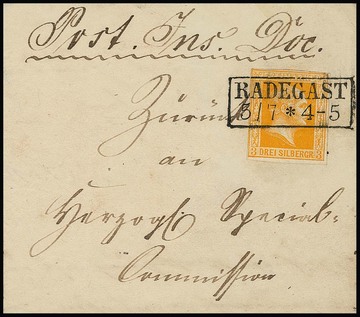 Post. Ins. Doc.
RADEGAST
3/7 * 4-5
Zurück
3 DREI SILBERGR. 3
an
Herzogl. Special-
Commission